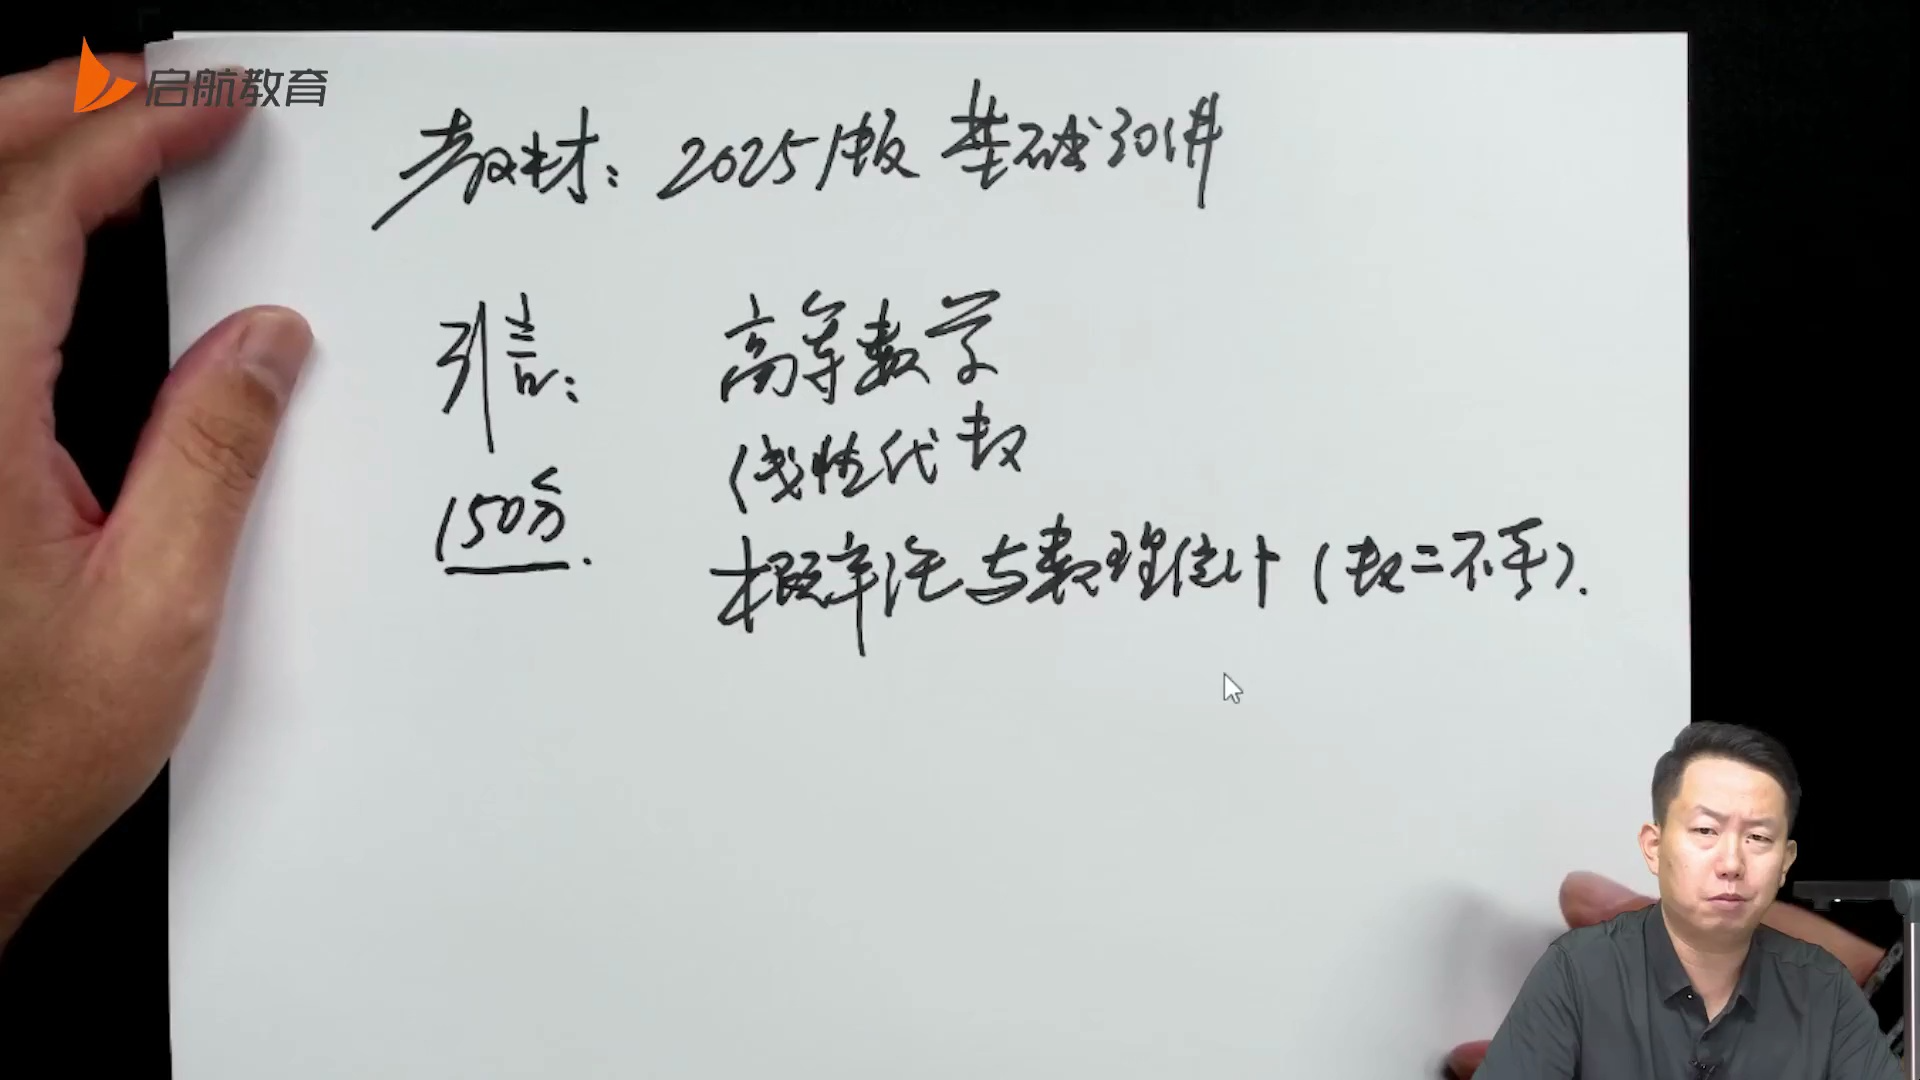 启航教育
教材：2025版 基础30讲
引言： 高等数学
线性代数
150分.
概率论与数理统计（数二不考）.